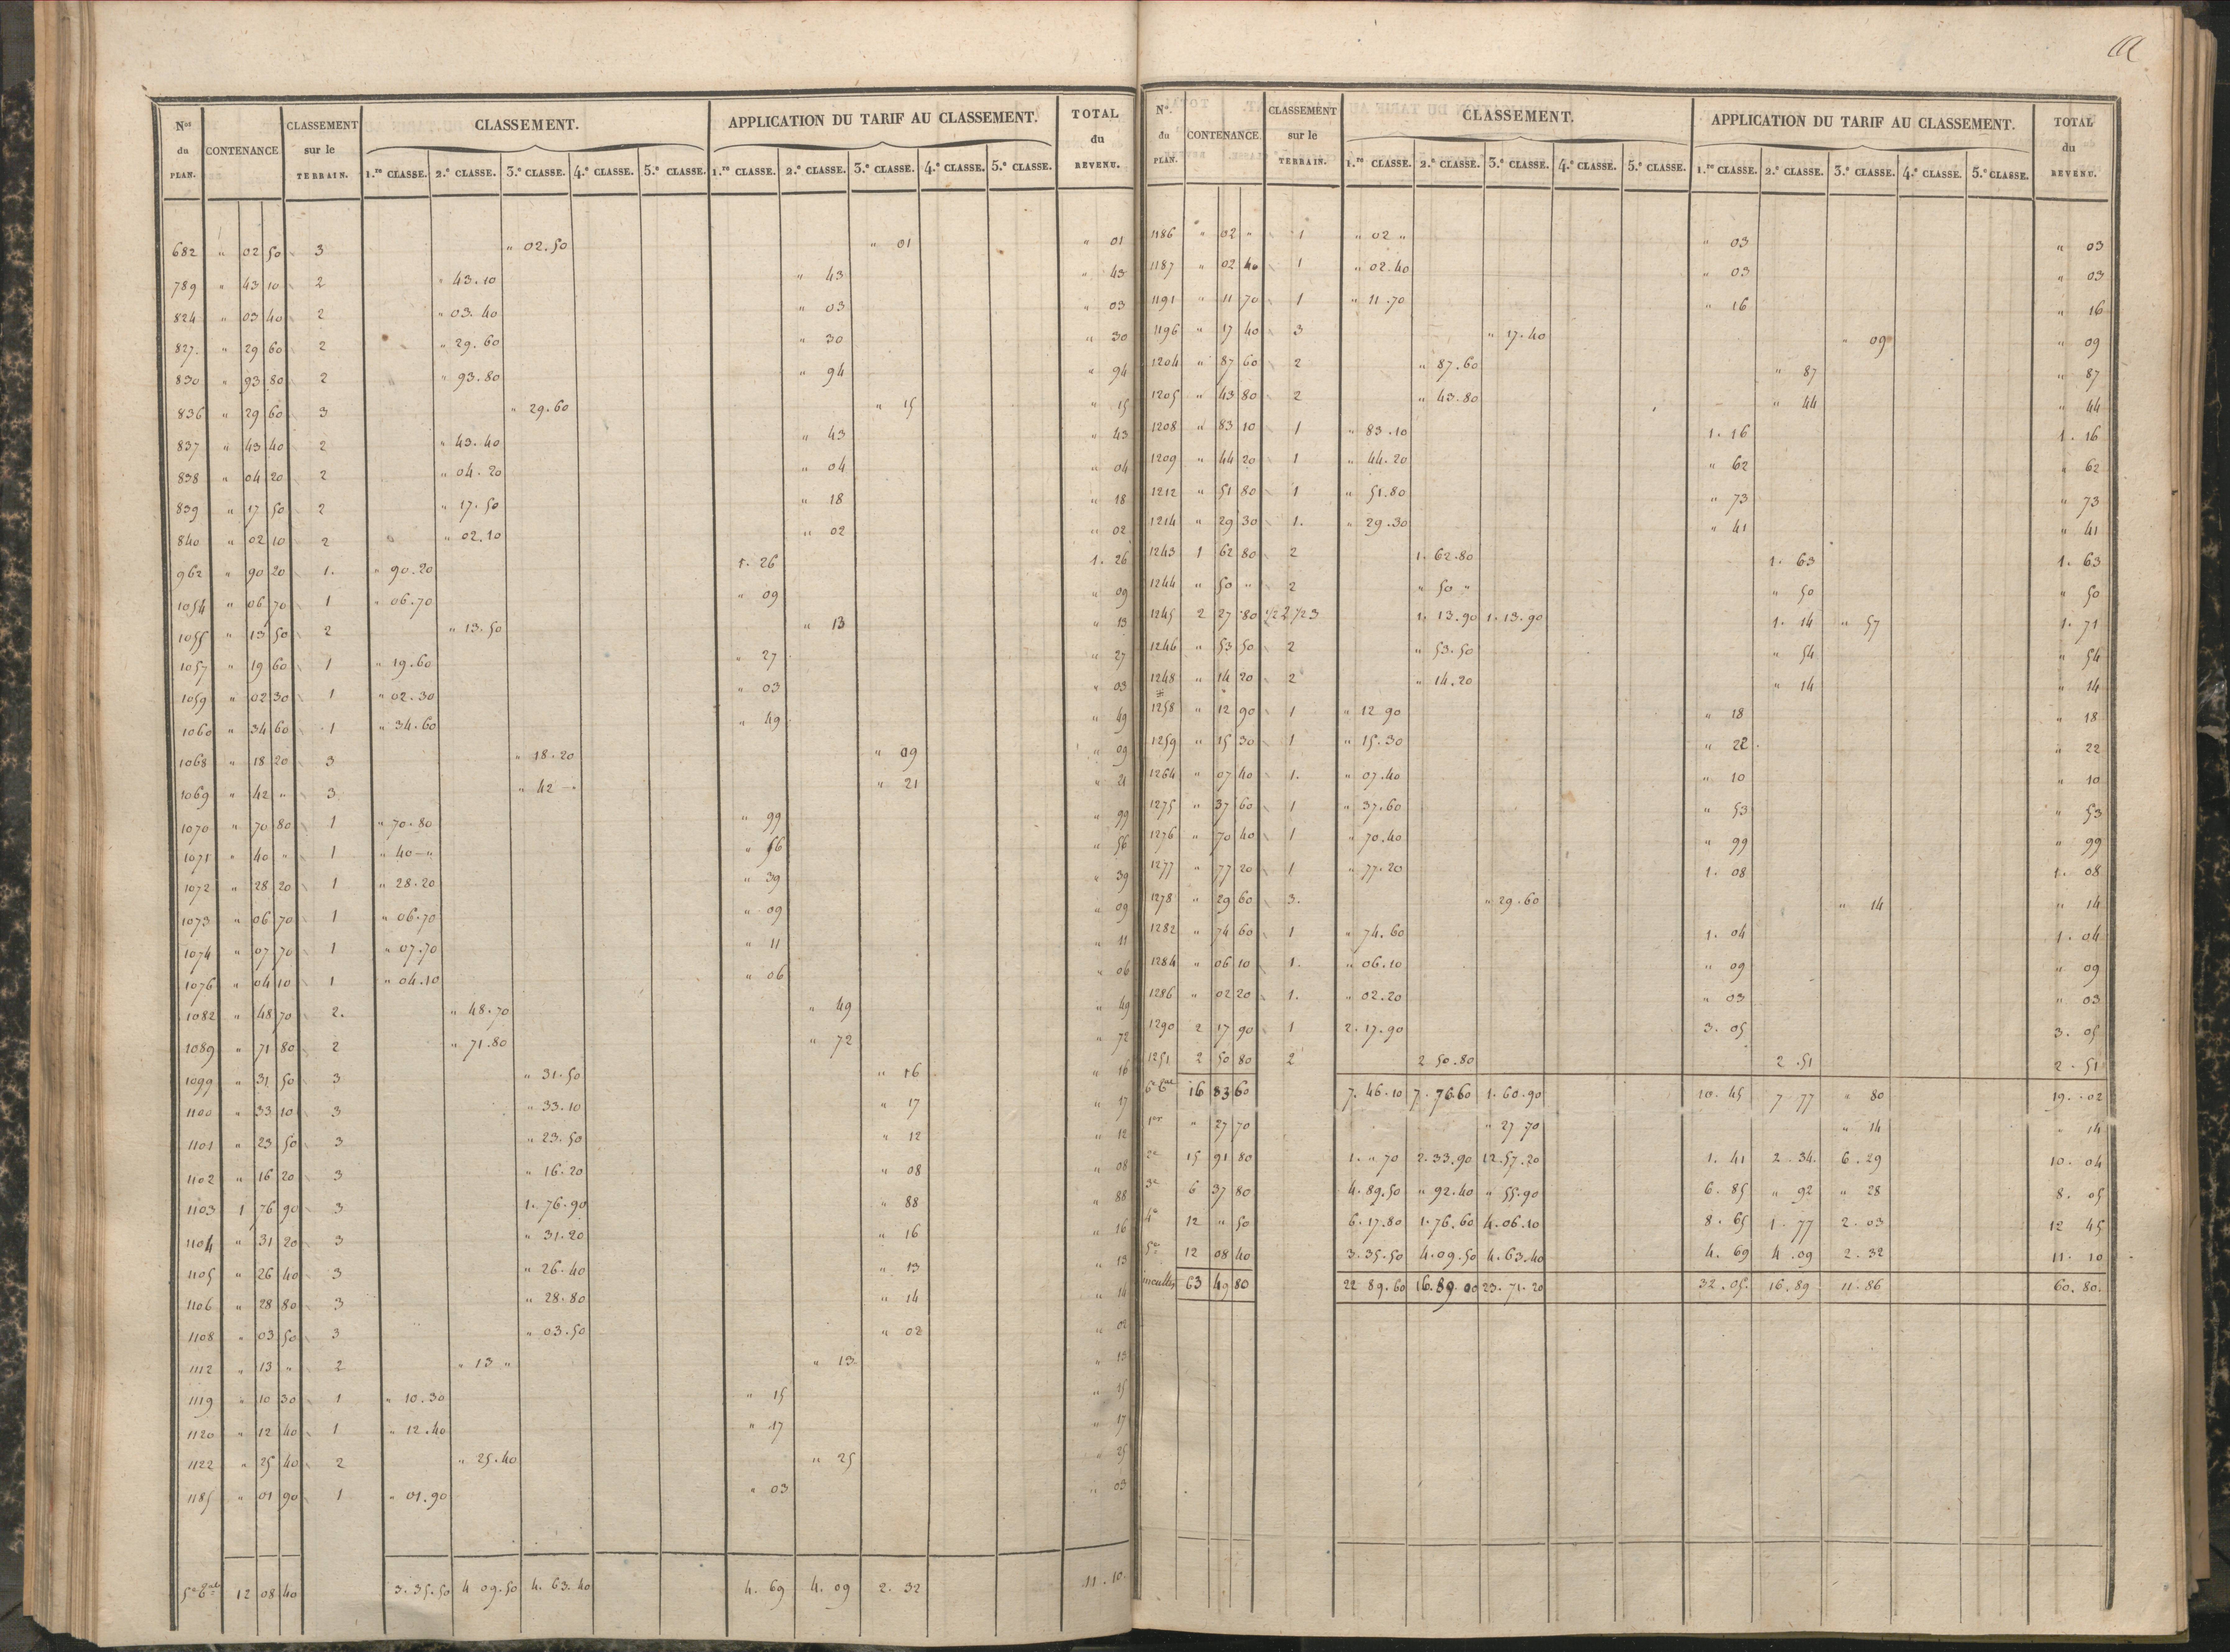 Nos du PLAN. CONTENANCE CLASSEMENT sur le TERRAIN. CLASSEMENT. APPLICATION DU TARIF AU CLASSEMENT. TOTAL du REVENU.
1.re CLASSE. 2.e CLASSE. 3.e CLASSE. 4.e CLASSE. 5.e CLASSE. 1.re CLASSE. 2.e CLASSE. 3.e CLASSE. 4.e CLASSE. 5.e CLASSE.
682 " 02 50 3 " 02.50 " 01 " 01
789 " 43 10 2 " 43.10 " 43 " 43
824 " 03 40 2 " 03.40 " 03 " 03
827. " 29 60 2 " 29.60 " 30 " 30
830 " 93 80 2 " 93.80 " 94 " 94
836 " 29 60 3 " 29.60 " 15 " 15
837 " 43 40 2 " 43.40 " 43 " 43
838 " 04 20 2 " 04.20 " 04 " 04
839 " 17 50 2 " 17.50 " 18 " 18
840 " 02 10 2 " 02.10 " 02 " 02
962 " 90 20 1. " 90.20 1. 26 1. 26
1054 " 06 70 1 " 06.70 " 09 " 09
1055 " 13 50 2 " 13.50 " 13 " 13
1057 " 19 60 1 " 19.60 " 27 " 27
1059 " 02 30 1 " 02.30 " 03 " 03
1060 " 34 60 1 " 34.60 " 49 " 49
1068 " 18 20 3 " 18.20 " 09 " 09
1069 " 42 " 3 " 42 - " " 21 " 21
1070 " 70 80 1 " 70.80 " 99 " 99
1071 " 40 " 1 " 40 - " " 56 " 56
1072 " 28 20 1 " 28.20 " 39 " 39
1073 " 06 70 1 " 06.70 " 09 " 09
1074 " 07 70 1 " 07.70 " 11 " 11
1076 " 04 10 1 " 04.10 " 06 " 06
1082 " 48 70 2. " 48.70 " 49 " 49
1089 " 71 80 2 " 71.80 " 72 " 72
1099 " 31 50 3 " 31.50 " 16 " 16
1100 " 33 10 3 " 33.10 " 17 " 17
1101 " 23 50 3 " 23.50 " 12 " 12
1102 " 16 20 3 " 16.20 " 08 " 08
1103 1 76 90 3 1. 76.90 " 88 " 88
1104 " 31 20 3 " 31.20 " 16 " 16
1105 " 26 40 3 " 26.40 " 13 " 13
1106 " 28 80 3 " 28.80 " 14 " 14
1108 " 03 50 3 " 03.50 " 02 " 02
1112 " 13 " 2 " 13 " " 13 " 13
1119 " 10 30 1 " 10.30 " 15 " 15
1120 " 12 40 1 " 12.40 " 17 " 17
1122 " 25 40 2 " 25.40 " 25 " 25
1185 " 01 90 1 " 01.90 " 03 " 03
12 08 40 3.35.50 4 09.50 4. 63.40 4. 69 4. 09 2. 32 11.10
Nos du PLAN. CONTENANCE. CLASSEMENT sur le TERRAIN. CLASSEMENT. APPLICATION DU TARIF AU CLASSEMENT. TOTAL du REVENU.
1.re CLASSE. 2.e CLASSE. 3.e CLASSE. 4.e CLASSE. 5.e CLASSE. 1.re CLASSE. 2.e CLASSE. 3.e CLASSE. 4.e CLASSE. 5.e CLASSE.
1186 " 02 " 1 " 02 " " 03 " 03
1187 " 02 40 1 " 02.40 " 03 " 03
1191 " 11 70 1 " 11.70 " 16 " 16
1196 " 17 40 3 " 17.40 " 09 " 09
1204 " 87 60 2 " 87.60 " 87 " 87
1205 " 43 80 2 " 43.80 " 44 " 44
1208 " 83 10 1 " 83.10 1. 16 1. 16
1209 " 44 20 1 " 44.20 " 62 " 62
1212 " 51 80 1 " 51.80 " 73 " 73
1214 " 29 30 1. " 29.30 " 41 " 41
1243 1 62 80 2 1. 62.80 1. 63 1. 63
1244 " 50 " 2 " 50 " " 50 " 50
1245 2 27 80 1/2 2 1/2 3 1. 13.90 1. 13.90 1. 14 " 57 1. 71
1246 " 53 50 2 " 53.50 " 54 " 54
1248 " 14 20 2 " 14.20 " 14 " 14
1258 " 12 90 1 " 12 90 " 18 " 18
1259 " 15 30 1 " 15.30 " 22 " 22
1264 " 07 40 1. " 07.40 " 10 " 10
1275 " 37 60 1 " 37.60 " 53 " 53
1276 " 70 40 1 " 70.40 " 99 " 99
1277 " 77 20 1 " 77.20 1. 08 1. 08
1278 " 29 60 3. " 29.60 " 14 " 14
1282 " 74 60 1 " 74.60 1. 04 1. 04
1284 " 06 10 1. " 06.10 " 09 " 09
1286 " 02 20 1. " 02.20 " 03 " 03
1290 2 17 90 1 2. 17.90 3. 05 3. 05
1251 2 50 80 2 2 50.80 2 .51 2. 51
16 83 60 7. 46.10 7. 76.60 1. 60.90 10. 45 7 77 " 80 19. 02
1er " 27 70 " 27 70 " 14 " 14
2e 15 91 80 1. " 70 2. 33.90 12.57.20 1. 41 2. 34. 6. 29 10. 04
3e 6 37 80 4. 89.50 " 92.40 " 55.90 6. 85 " 92 " 28 8. 05
4e 12 " 50 6. 17.80 1. 76.60 4. 06.10 8. 65 1. 77 2. 03 12 45
5e 12 08 40 3. 35.50 4. 09.50 4. 63.40 4. 69 4. 09 2. 32 11. 10
63 49 80 22 89.60 16.89.00 23. 71.20 32.05. 16.89 11. 86 60. 80.